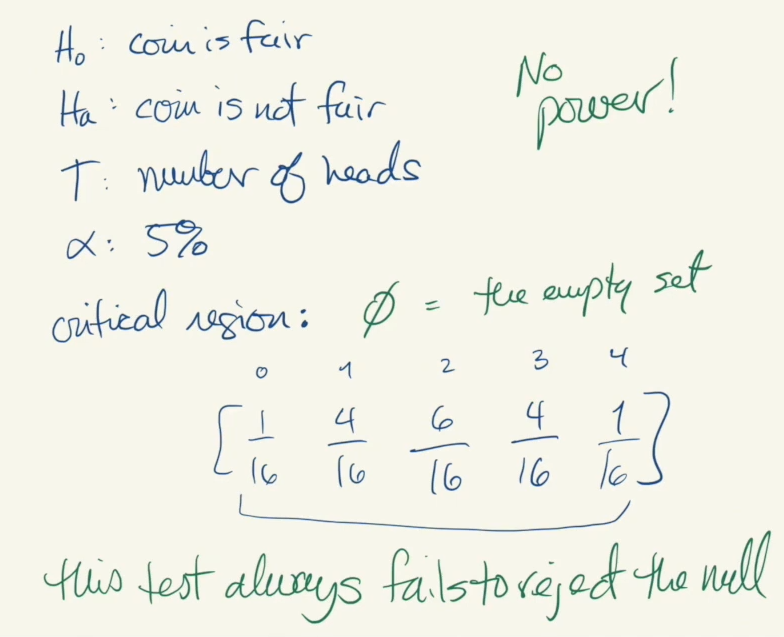 H₀: coin is fair
No
power!
Ha: coin is not fair
T: number of heads
α: 5%
critical region: ∅ = the empty set
0 1 2 3 4
[1/16 4/16 6/16 4/16 1/16]
this test always fails to reject the null